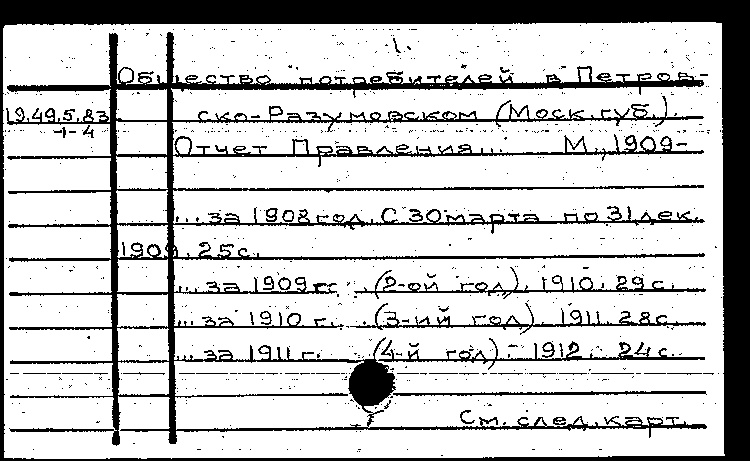 1.
Общество потребителей в Петров-
19.49.5.83 ско-Разумовском (Моск.губ.).
1-4
Отчет Правления... М., 1909-
...за 1908 год. С 30 марта по 31 дек.
1909. 25 с.
...за 1909 г. (2-ой год). 1910. 29 с.
...за 1910 г. (3-ий год). 1911. 28 с.
...за 1911 г. (4-й год). 1912. 24 с.
См. след. карт.